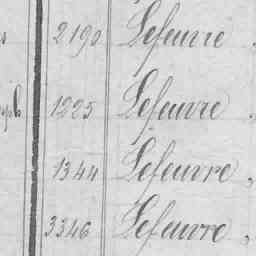 2190 Lefeuvre
1225 Lefeuvre
1344 Lefeuvre,
3346 Lefeuvre,